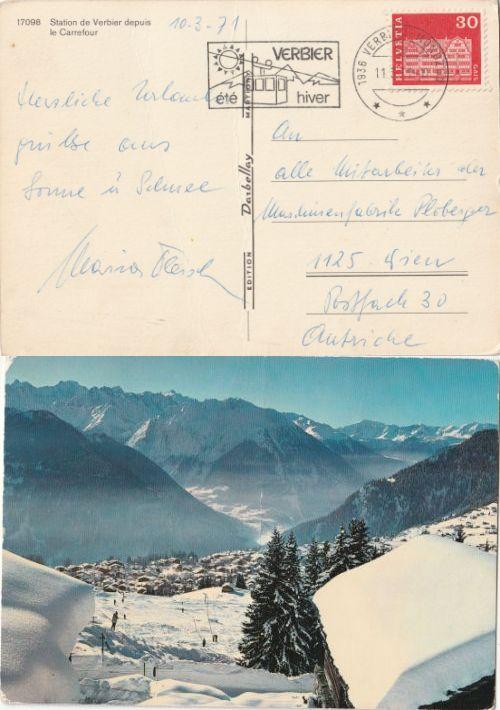 17098 Station de Verbier depuis
le Carrefour
10-3-71
VERBIER
été hiver
1936 VERBIER
11.
HELVETIA
30
Herzliche Urlaubs
grüße aus
Sonne u Schnee
EDITION Darbellay MARTIGNY
An
alle Mitarbeiter der
Maschinenfabrik Ploberger
1125 Wien
Postfach 30
Autriche